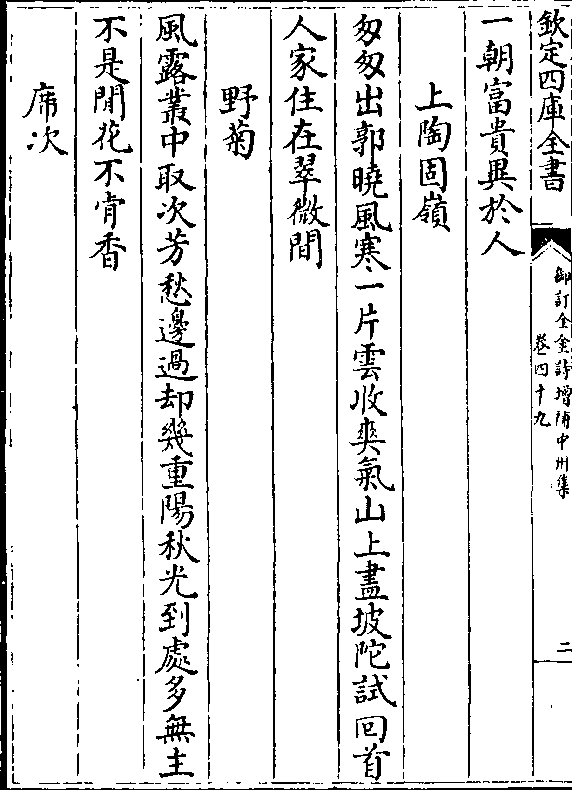 欽定四庫全書
御訂全金詩增補中州集
卷四十九
二
一朝富貴異於人
上陶固嶺
匆匆出郭曉風寒一片雲收爽氣山上盡坡陀試回首
人家住在翠微間
野菊
風露叢中取次芳愁邊過却幾重陽秋光到處多無主
不是閒花不肯香
席次